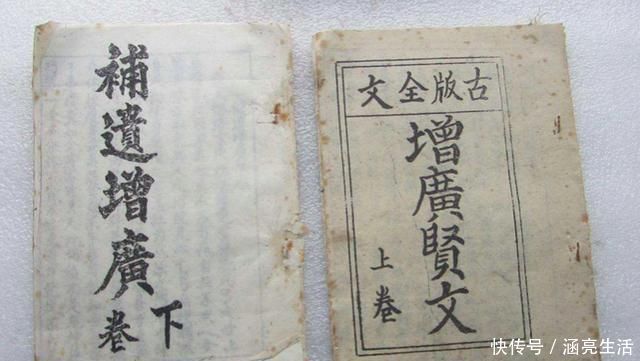 補遺增廣
下卷
古版全文
增廣賢文
上卷
快传号／涵亮生活